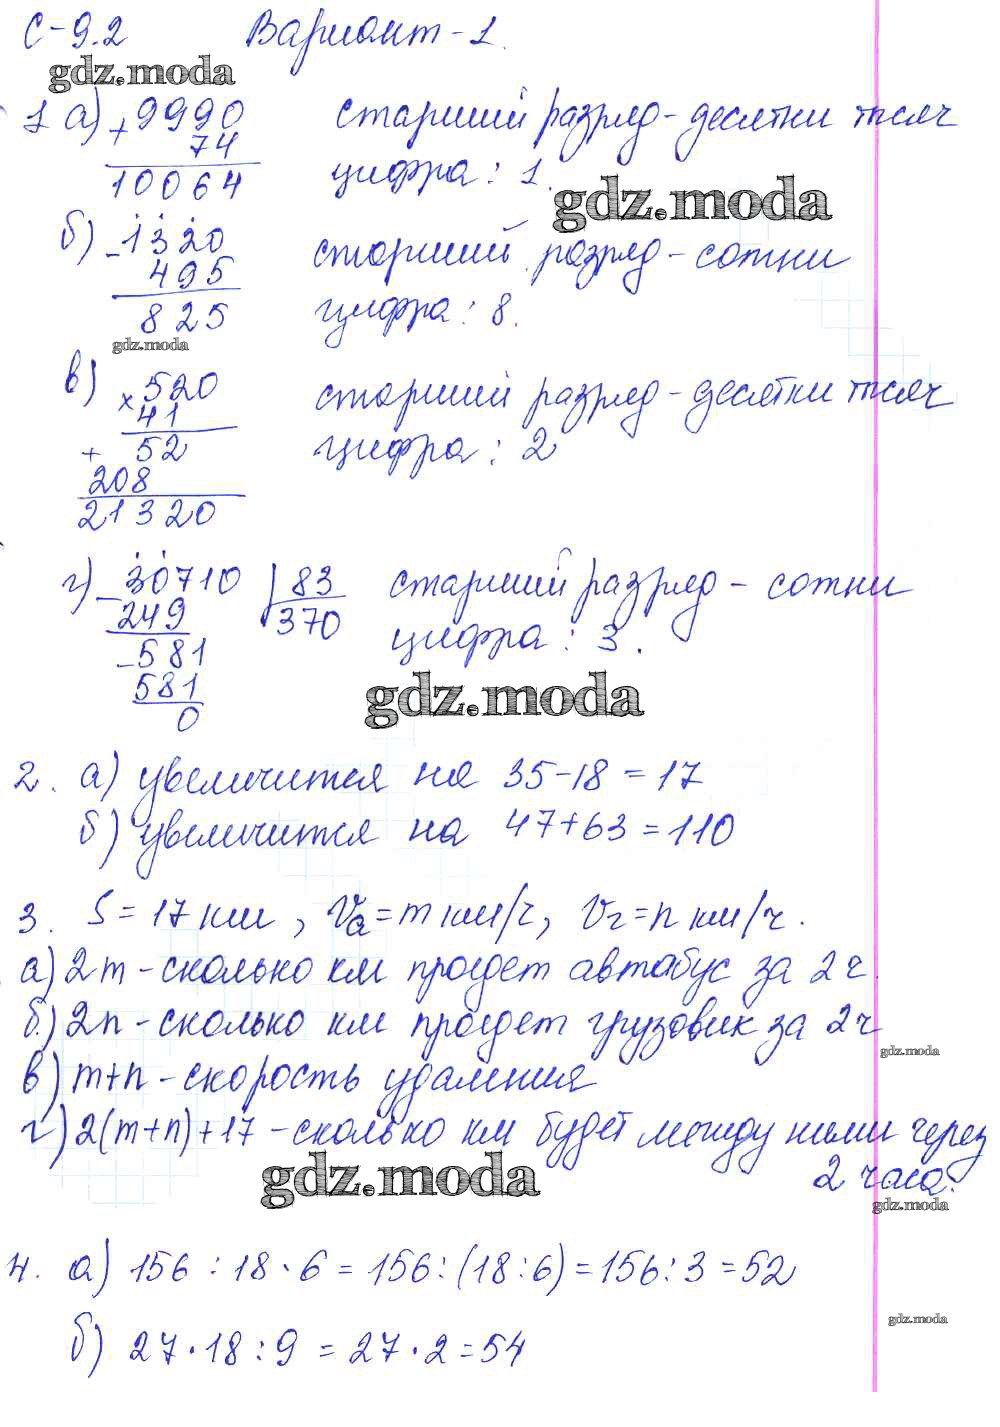 С-9.2 Вариант-1.
gdz.moda
1 а) + 9990 старший разряд - десятки тысяч
74
10064 цифра: 1.
gdz.moda
б) - 1320 старший разряд - сотни
495
825 цифра: 8.
gdz.moda
в) × 520 старший разряд - десятки тысяч
41
+ 52 цифра: 2
208
21320
г) - 30710 | 83 старший разряд - сотни
249 370 цифра: 3.
- 581
581
0
gdz.moda
2. а) увеличится на 35-18=17
б) увеличится на 47+63=110
3. S=17 км, Vа=m км/ч, Vг=n км/ч.
а) 2m - сколько км проедет автобус за 2ч.
б) 2n - сколько км проедет грузовик за 2ч
gdz.moda
в) m+n - скорость удаления
г) 2(m+n)+17 - сколько км будет между ними через
2 часа.
gdz.moda
gdz.moda
4. а) 156:18·6=156:(18:6)=156:3=52
gdz.moda
б) 27·18:9=27·2=54